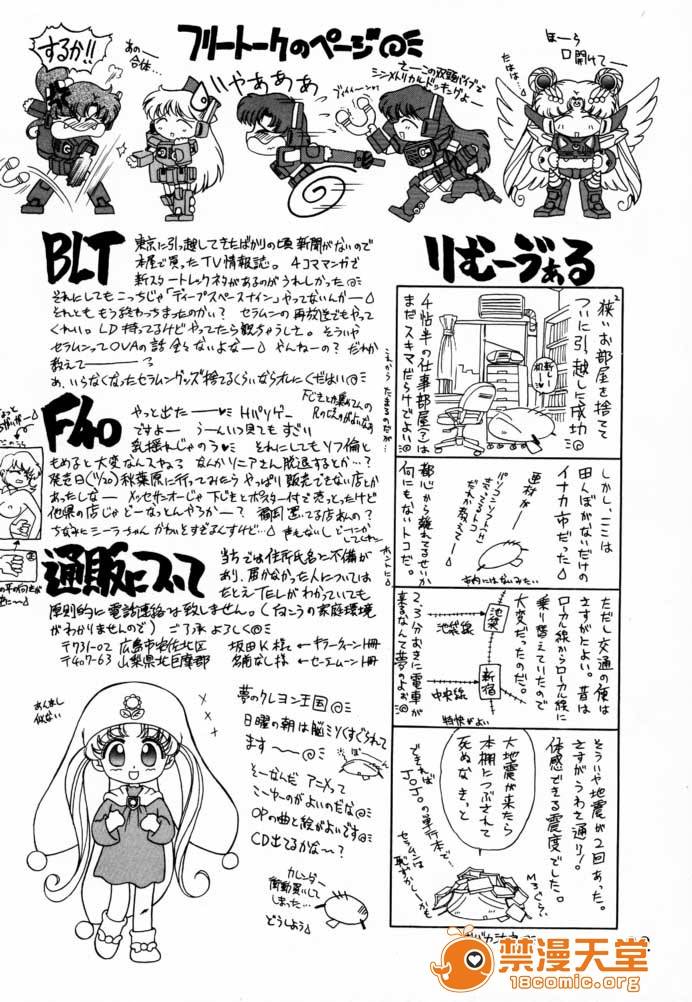 フリートークのページ
するか!!
あのー
合体…
いやあああ
さーこの双頭バイブで
シンメトリカルドッキングよー
ほーら
口開けてー
たはは
BLT
東京に引っ越してきたばかりの頃新聞がないので
本屋で買ったTV情報誌。4コママンガで
新スタートレックネタがあるのがうれしかった
それにしてもこっちじゃ「ディープスペースナイン」やってないんかー
それとももう終わっちまったのかい? セラムンの再放送でもやって
くれい。LD持ってるけどやってたら観ちゃうしさ。そういや
セラムンってOVAの話全々ないよなー やんねーの? だれか
教えてーーろ
あ、いらなくなったセラムングッズ捨てるくらいならオレにくだはい
F40
やっと出たーー Hバリゲー
ですよー うーんいつ見てもすごい
乳揺れじゃのう それにしてもソフ倫と
もめると大変なんスやろ? なんかソニアさん脱退するとか…?
発売日(11/20)秋葉原に行ってみたらやっぱり販売できない店とか
あったしなー メッセサンオーじゃ下じきとポスター付で売っとったけど
他県の店じゃどーなっとんやろうかー?
ちなみにシーラちゃんかわいとすぎるんすけど…
通販について
当方では住所氏名に不備が
あり、届かなかった人については
たとえTELがわかっていても
原則的に電話連絡は致しません。(向こうの家庭環境
がわかりませんので) ご了承よろしく
〒731-02 広島市安佐北区 坂田K様
〒407-63 山梨県北巨摩郡 名前なし様
あんまし
似ない
夢のクレヨン王国
日曜の朝は脳ミソくすぐられて
ますー
そーなんだ アニメって
こーゆーのがよいのだな
OPの曲と絵がよいです
CD出てるかな~?
カレンダー
衝動買いして
しまった…
どうしよう
りむーヴぁる
狭いお部屋を捨てて
ついに引っ越しに成功
4帖半の仕事部屋(?)は
まだスキマだらけでよい
しかし、ここは
田んぼがないだけの
イナカ市だった
パソコンソフトは
だれか教えてー
市内にはないみたい
都心から離れてるせいか
何にもないトコだ。
ただし交通の便は
さすがによい。昔は
ローカル線からローカル線に
乗り替えていたので
大変だったのだ。
池袋
池袋線
新宿
中央線
2、3分おきに電車が
来るなんて夢のよお
そういや地震が2回あった。
さすがうわさ通り!
体感できる震度でした。
大地震が来たら
本棚につぶされて
死ぬなきっと
できれば
JoJoの単行本で…
セラムンは
恥ずかしーかも
禁漫天堂
18comic.org